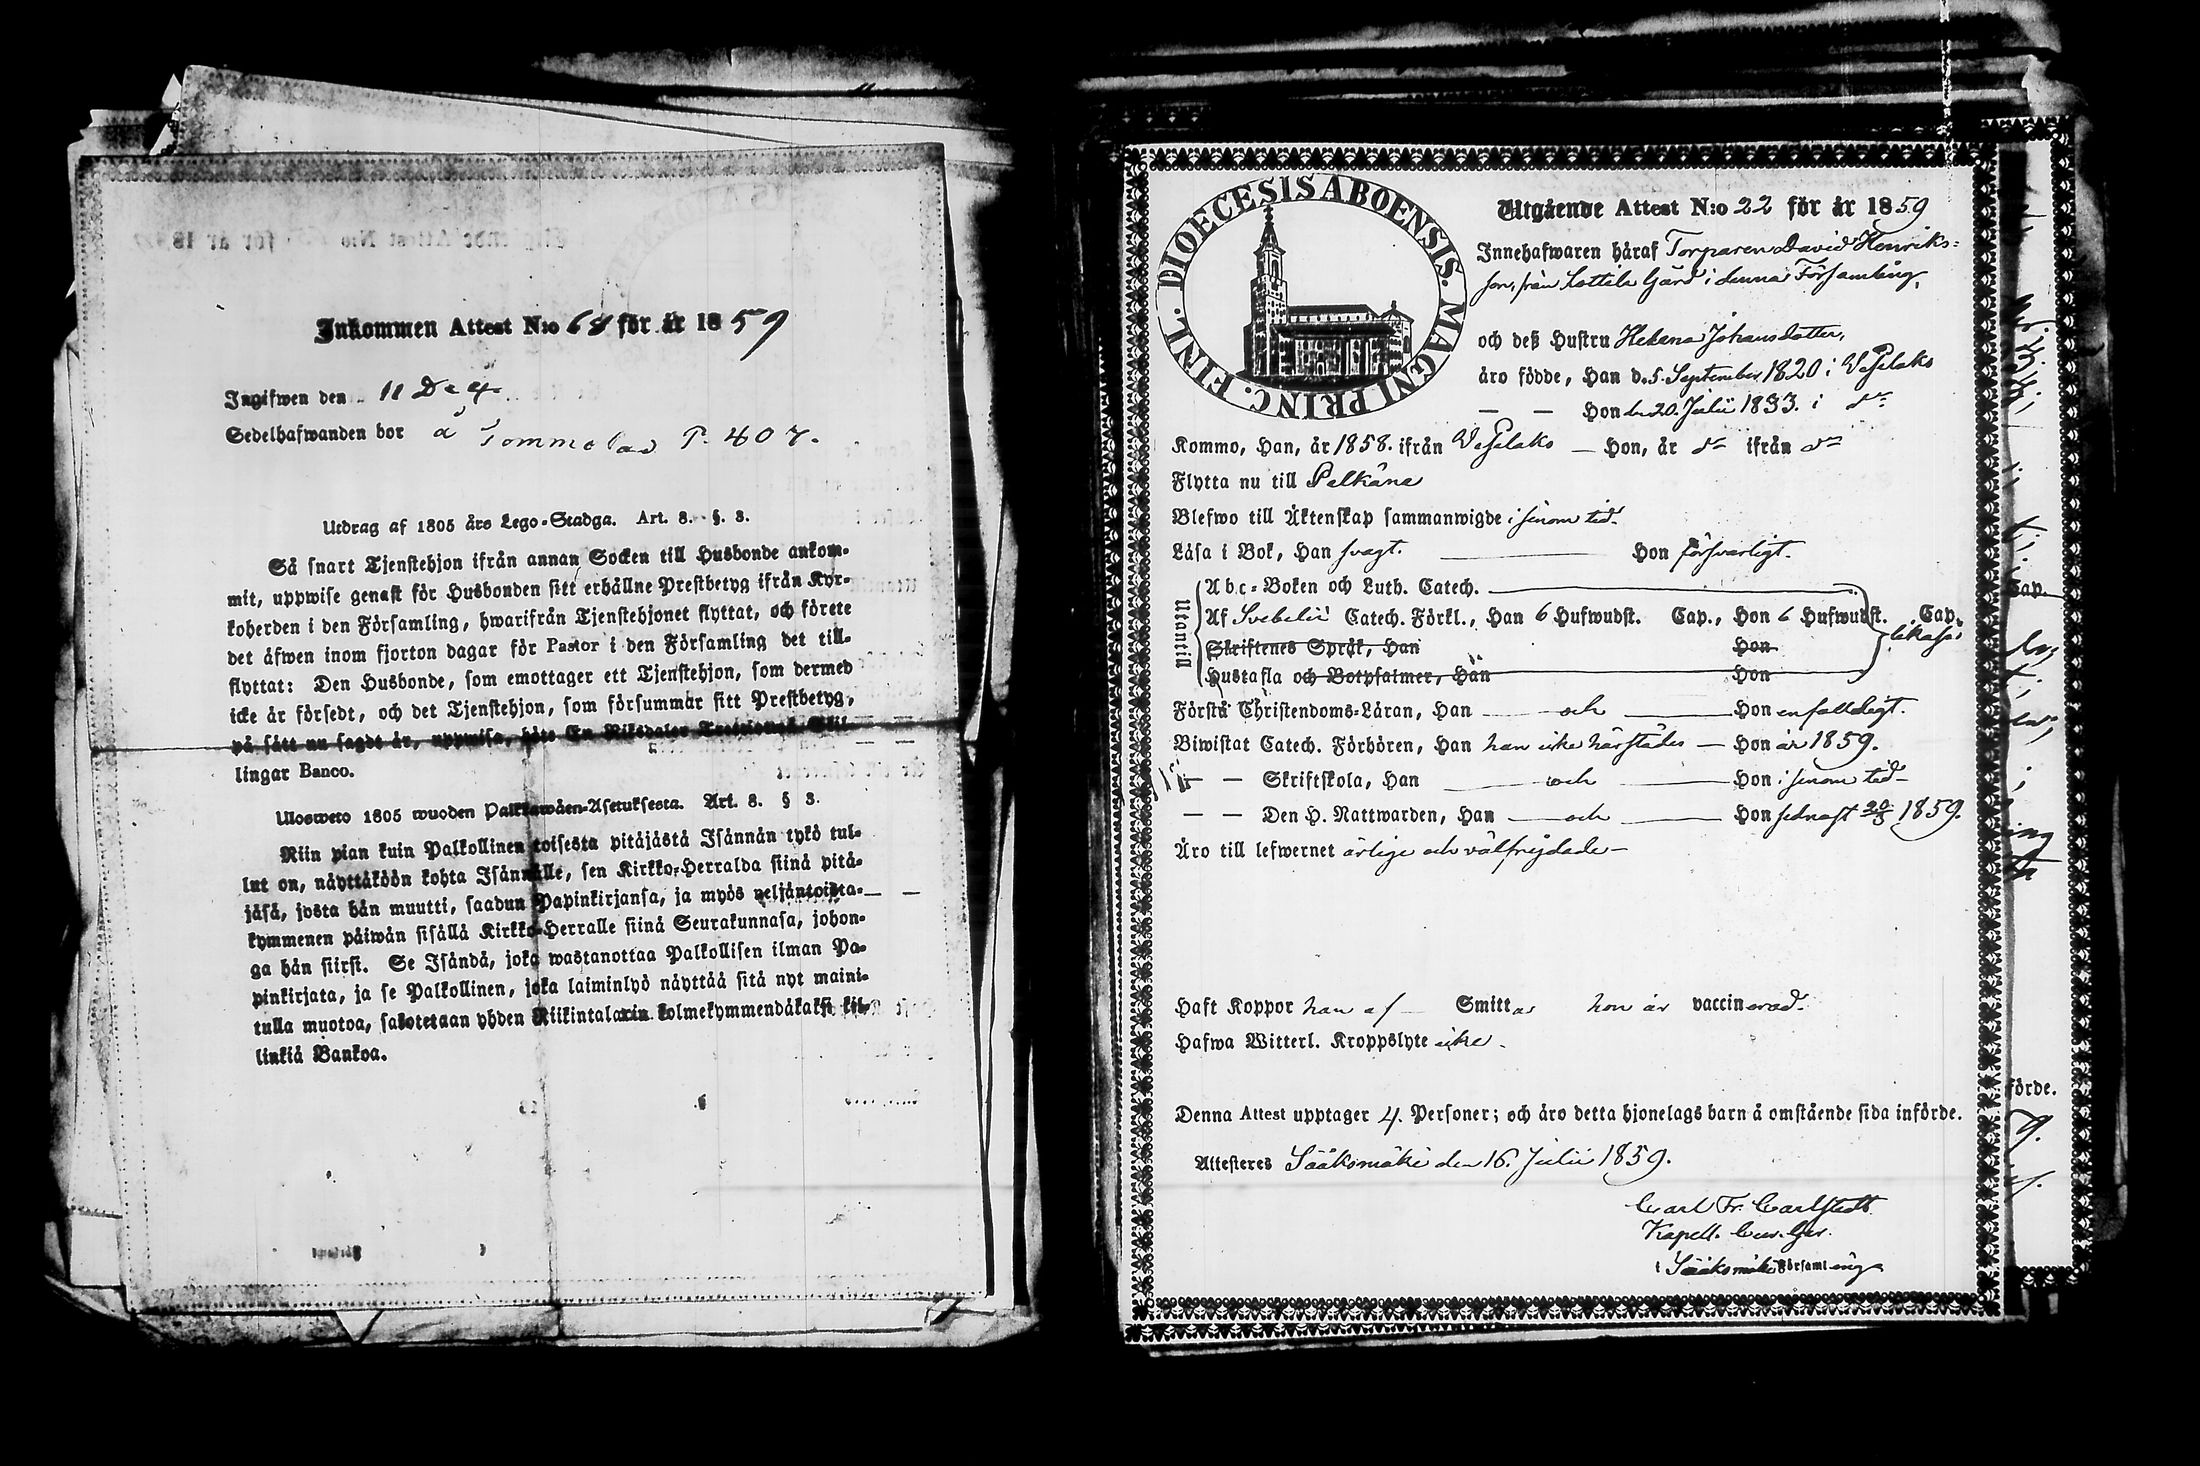 Inkommen Attest N:o 68 för år 1859
Ingifwen den 11 Dec
Sedelhafwanden bor å Tommola P. 407.
Utdrag af 1805 års Lego-Stadga. Art. 8. §. 3.
Så snart Tjenstehjon ifrån annan Socken till Husbonde ankom-
mit, uppwise genast för Husbonden sitt erhållne Prestbetyg ifrån Kyr-
koherden i den Församling, hwarifrån Tjenstehjonet flyttat, och förete
det äfwen inom fjorton dagar för Pastor i den Församling det till-
flyttat: Den Husbonde, som emottager ett Tjenstehjon, som dermed
icke är försedt, och det Tjenstehjon, som försummar sitt Prestbetyg,
på sätt nu sagdt är, uppwisa, böte En Riksdaler
lingar Banco.
Ulosweto 1805 wuoden Palkkawäen-Asetuksesta. Art. 8. § 3.
Niin pian kuin Palkollinen toisesta pitäjästä Isännän tykö tul-
lut on, näyttäköön kohta Isännälle, sen Kirkko-Herralda siinä pitä-
jäsä, josta hän muutti, saadun Papinkirjansa, ja myös neljäntoista-
kymmenen päiwän sisällä Kirkko-Herralle siinä Seurakunnasa, johon-
ga hän siirsi. Se Isändä, joka wastanottaa Palkollisen ilman Pa-
pinkirjata, ja se Palkollinen, joka laiminlyö näyttää sitä nyt maini-
tulla muotoa, sakotetaan yhden Riikintalarin kolmekymmendäkaksi kil-
linkiä Bankoa.
DIOECESIS ABOENSIS. MAGNI PRINC. FINL.
Utgående Attest N:o 22 för år 1859
Innehafwaren häraf Torparen David Henriks-
son, från Lottila Gård i denna Församling,
och deß Hustru Helena Johansdotter,
äro födde, Han d. 5. September 1820 i Wesilaks
— — Hon den 20. Julii 1833. i do
Kommo, Han, år 1858. ifrån Wesilaks — Hon, år do ifrån do
Flytta nu till Pelkäne
Blefwo till Äktenskap sammanwigde i sinom tid.
Läsa i Bok, Han svagt. Hon försvarligt.
Utantill
Abc-Boken och Luth. Catech.
Af Svebelii Catech. Förkl., Han 6 Hufwudst. Cap., Hon 6 Hufwudst. Cap. likaså
Skriftenes Språk, Han Hon
Hustafla och Botpsalmer, Han Hon
Förstå Christendoms-Läran, Han — och — Hon enfalldigt.
Biwistat Catech. Förhören, Han han icke härstädes — Hon år 1859.
— — Skriftskola, Han — och — Hon i sinom tid
— — Den H. Nattwarden, Han — och — Hon sednast 1859.
Äro till lefwernet ärlige och välfrejdade —
Haft Koppor han af Smittas hon är vaccinerad.
Hafwa Witterl. Kroppslyte icke.
Denna Attest upptager 4. Personer; och äro detta hjonelags barn å omstående sida införde.
Attesteres Sääksmäki den 16. Julii 1859.
Carl Fr. Carlstedt
Kapell.
i Sääksmäki Församling
förde.